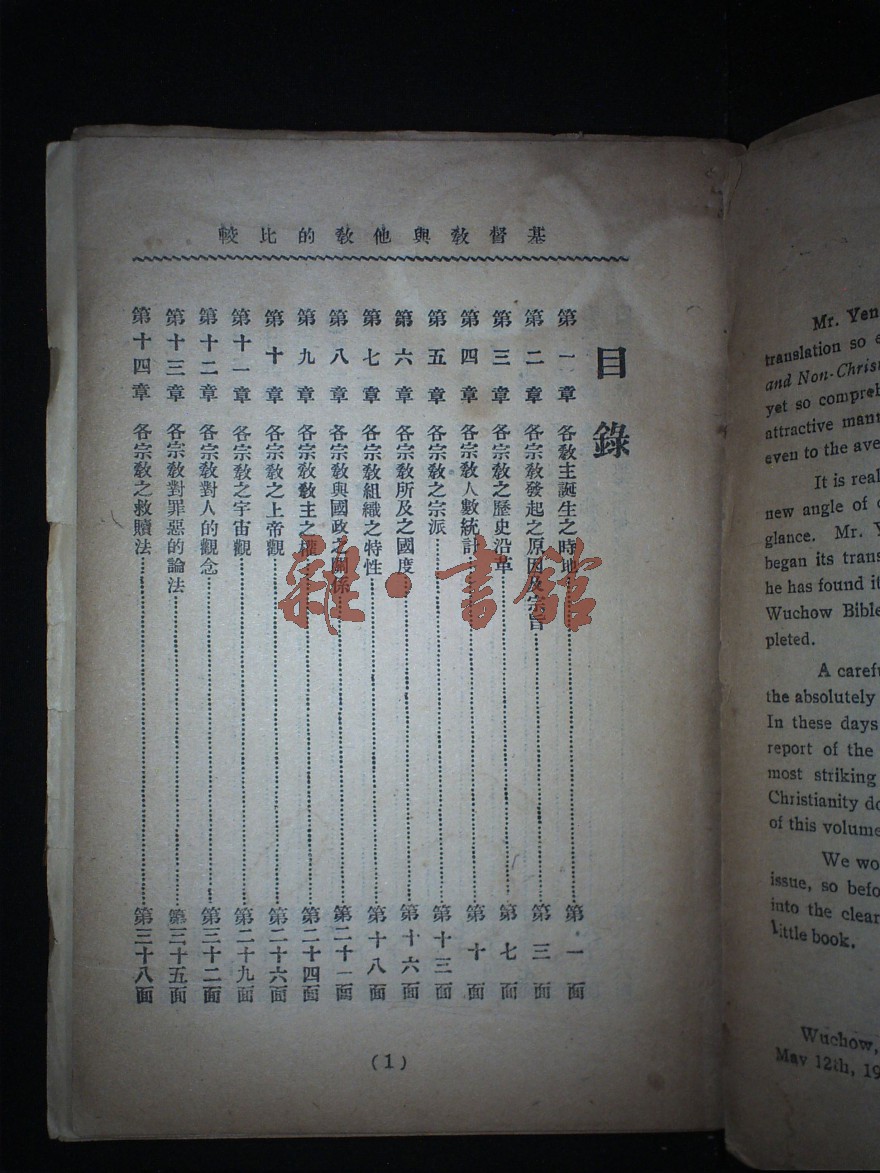 基督教與他教的比較
目錄
第一章 各教主誕生之時地……第一面
第二章 各宗教發起之原因及宗旨……第三面
第三章 各宗教之歷史沿革……第七面
第四章 各宗教人數統計……第十面
第五章 各宗教之宗派……第十三面
第六章 各宗教所及之國度……第十六面
第七章 各宗教組織之特性……第十八面
第八章 各宗教與國政之關係……第二十一面
第九章 各宗教教主之權……第二十四面
第十章 各宗教之上帝觀……第二十六面
第十一章 各宗教之宇宙觀……第二十九面
第十二章 各宗教對人的觀念……第三十二面
第十三章 各宗教對罪惡的論法……第三十五面
第十四章 各宗教之救贖法……第三十八面
(1)
雜·書館
Mr. Yen
translation so e
and Non-Christ
yet so compreh
attractive mann
even to the ave
It is real
new angle of
glance. Mr. Y
began its trans
he has found it
Wuchow Bible
pleted.
A carefu
the absolutely
In these days
report of the
most striking
Christianity do
of this volume
We wo
issue, so befo
into the clear
little book.
Wuchow,
May 12th, 19